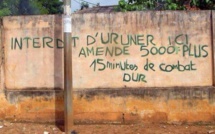 INTERDIT D'URUNER ICI
AMENDE 5000F PLUS
15 minutes de combat
DUR